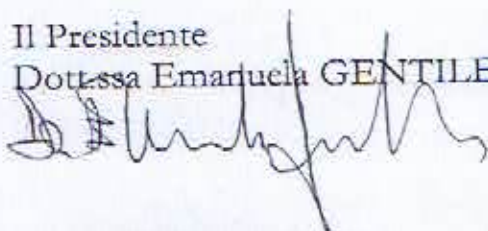 Il Presidente
Dott.ssa Emanuela GENTILE